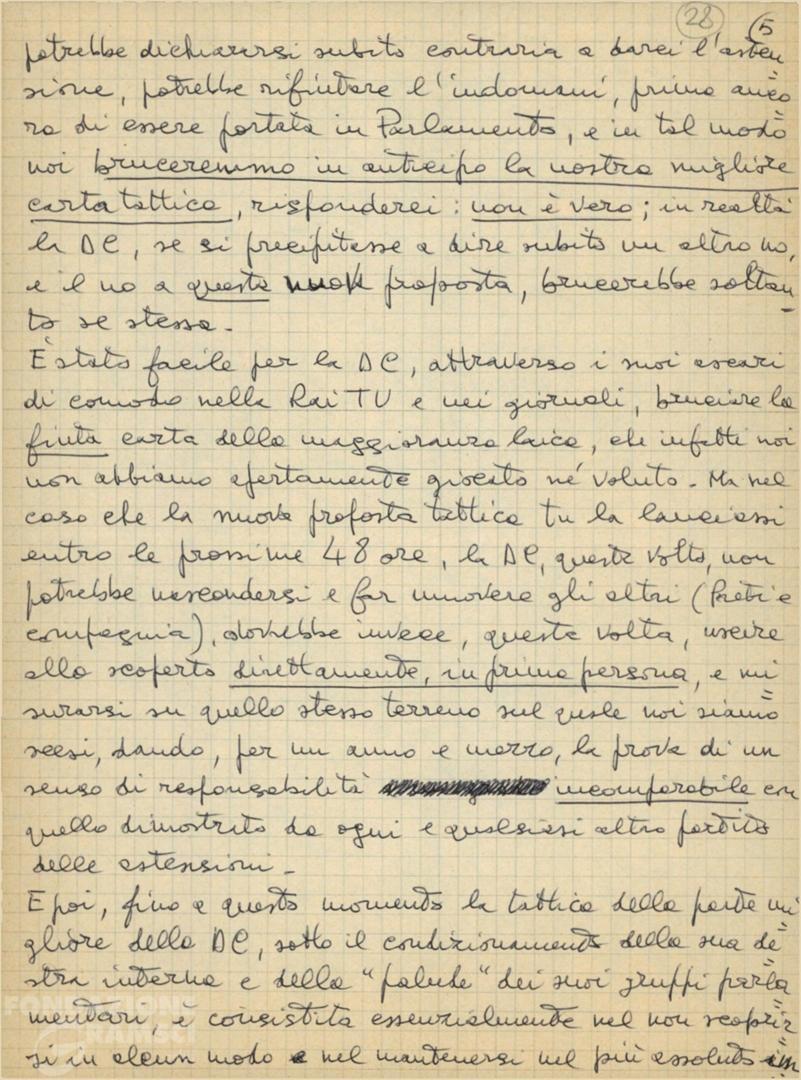 28 5
potrebbe dichiararsi subito contraria a darci l'asten
sione, potrebbe rifiutare l'indomani, prima anco=
ra di essere portata in Parlamento, e in tal modo
noi bruceremmo in anticipo la nostra migliore
carta tattica, risponderei: non è vero; in realtà
la DC, se si precipitasse a dire subito un altro no,
e il no a questa nuova proposta, brucerebbe soltan-
to se stessa.
È stato facile per la DC, attraverso i suoi ascari
di comodo nella Rai TV e nei giornali, bruciare la
finta carta della maggioranza laica, che infatti noi
non abbiamo apertamente giocato né voluto. Ma nel
caso che la nuova proposta tattica tu la lanciassi
entro le prossime 48 ore, la DC, questa volta, non
potrebbe nascondersi e far muovere gli altri (Preti e
compagnia), dovrebbe invece, questa volta, uscire
allo scoperto direttamente, in prima persona, e mi=
surarsi su quello stesso terreno sul quale noi siamo
scesi, dando, per un anno e mezzo, la prova di un
senso di responsabilità incomparabile con
quello dimostrato da ogni e qualsiasi altro partito
delle astensioni.
E poi, fino a questo momento la tattica della parte mi=
gliore della DC, sotto il condizionamento della sua de=
stra interna e della "palude" dei suoi gruppi parla=
mentari, è consistita essenzialmente nel non scoprir=
si in alcun modo e nel mantenersi nel più assoluto im=
FONDAZIONE
GRAMSCI